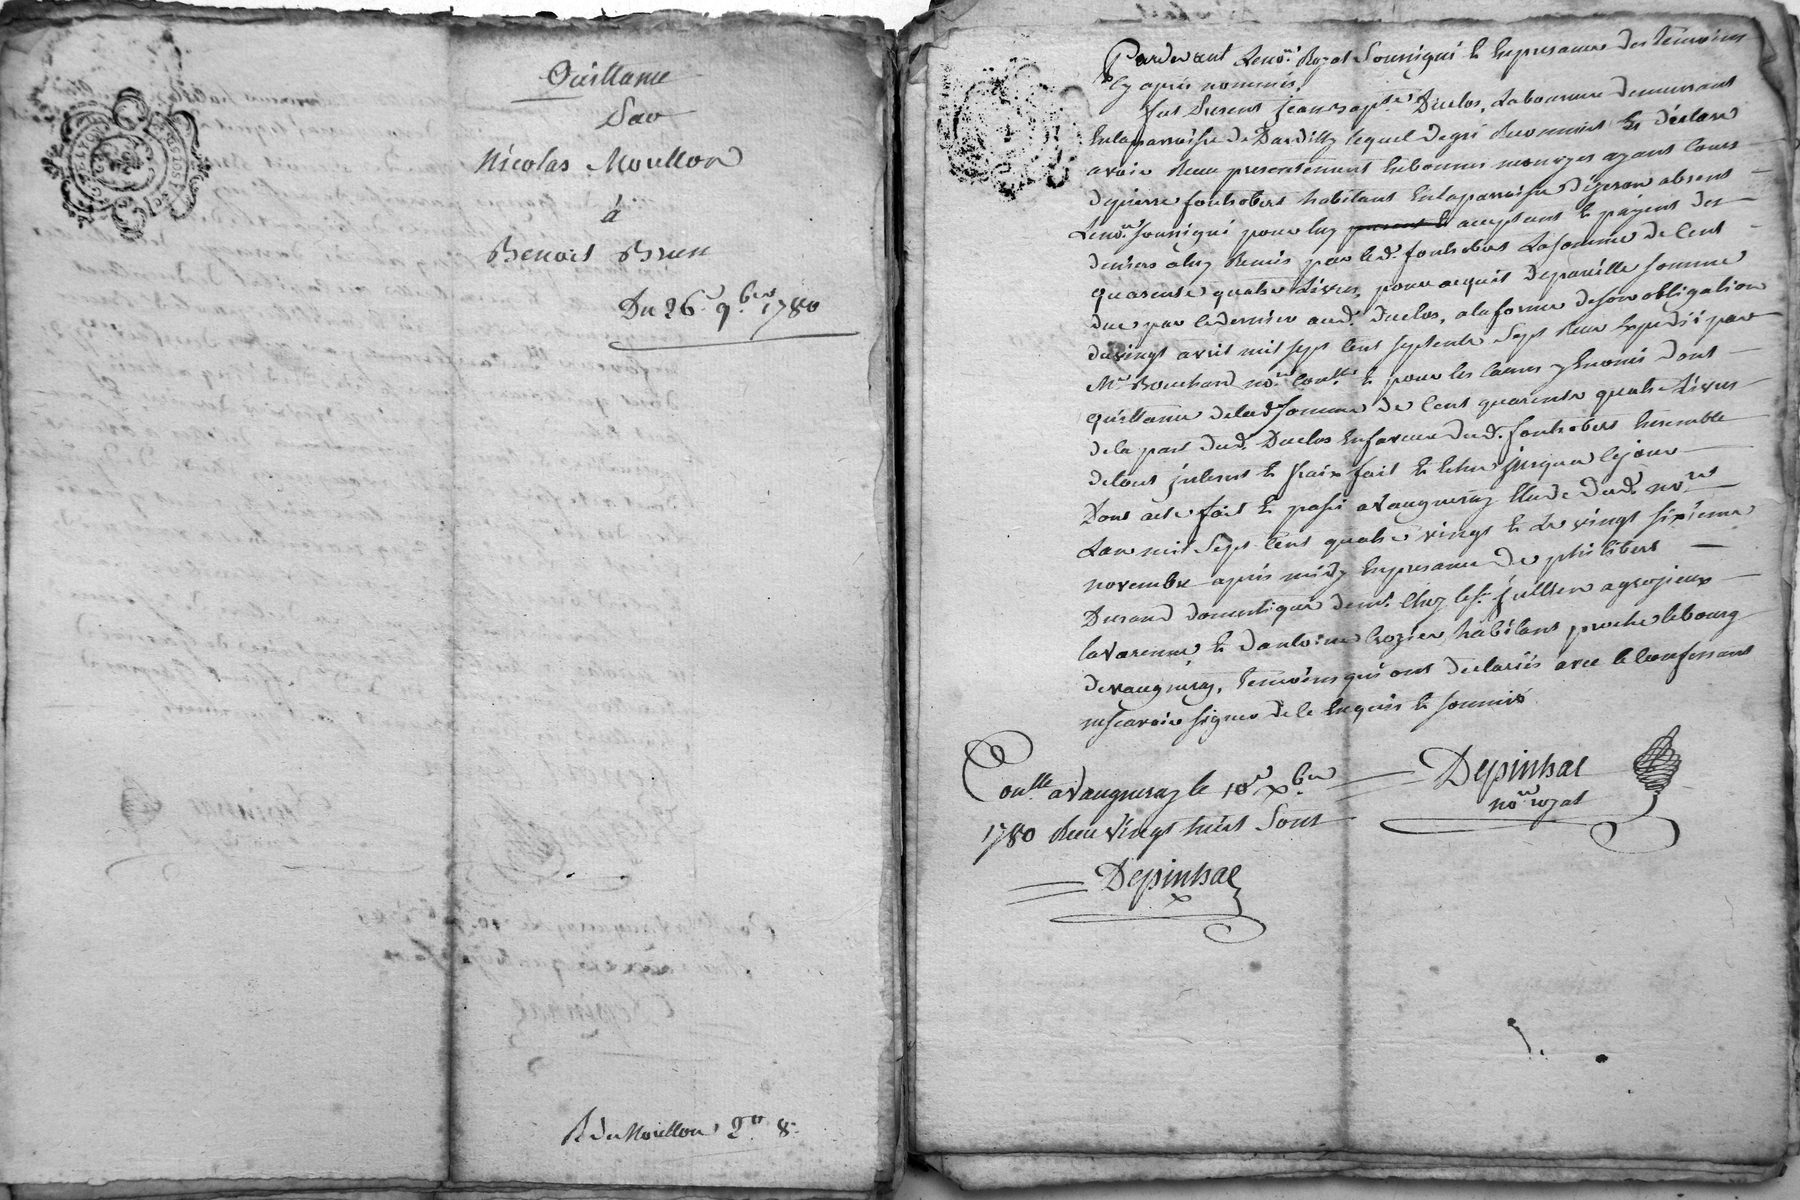 Quittance
Par
Nicolas Moullon
à
Benoit Brun
Du 26e 9bre 1780
R du Mouillon 2# 8s
Pardevant Le nore Royal Soussigné Et En presance des témoins
Cy après nommés,
fut Present Jean Bapte Duclos, Laboureur demeurant
En la parroisse de Dardilly lequel de gré Reconnoit Et déclare
avoir Reçu presentement En bonnes monoyes ayant Cours
de pierre fonhobert habitant En la parroisse d'izeron absent
Le nore soussigné pour luy present Et aceptant Et payent des
deniers a luy Remis par led. fonhobert La somme de Cent
quarente quatre Livres, pour acquit de pareille somme
due par le dernier aud. Duclos, a la forme de son obligation
du vingt avril mil sept Cent septente Sept Reçu Expedié par
Me Bouchard nore Conlle Et pour les Causes y Enoncés dont
quittance de lad. somme de Cent quarente quatre Livres
de la part dud. Duclos En faveur dud. fonhobert Ensemble
de tout interest Et fraix fait Et Echu jusques Ce jour
Dont acte fait Et passé a Vaugneray Etude dud. nore
L'an mil Sept Cent quatre vingt Et Le vingt sixieme
novembre après midy En presance de philibert
Durand domestique demt. Chez le sr. jullien a grezieux
la Varenne, Et d'antoine Crozier habitant proche le bourg
de Vaugneray, temoins qui ont declarés avec le Confessant
ne sçavoir signer de ce Enquis Et sommés
Depinhac
nore royal
Conlle a Vaugneray le 10e Xbre
1780 Reçu vingt huit Sous
Depinhac